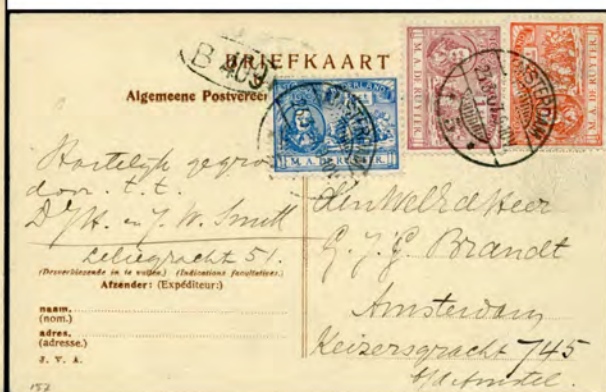 BRIEFKAART
B 403
Algemeene Postvereen
NEDERLAND
M. A. DE RUYTER.
M. A. DE RUYTER.
M. A. DE RUYTER.
AMSTERDAM
AMSTERDAM
Hartelijk gegroet
door t.t.
J. W. Smitt
Leliegracht 51.
(Desverkiezende in te vullen.) (Indications facultatives.)
Afzender: (Expéditeur:)
naam.
(nom.)
adres.
(adresse.)
J. V. A.
157
den WelEd Heer
G. J. G. Brandt
Amsterdam
Keizersgracht 745
b/d Amstel.